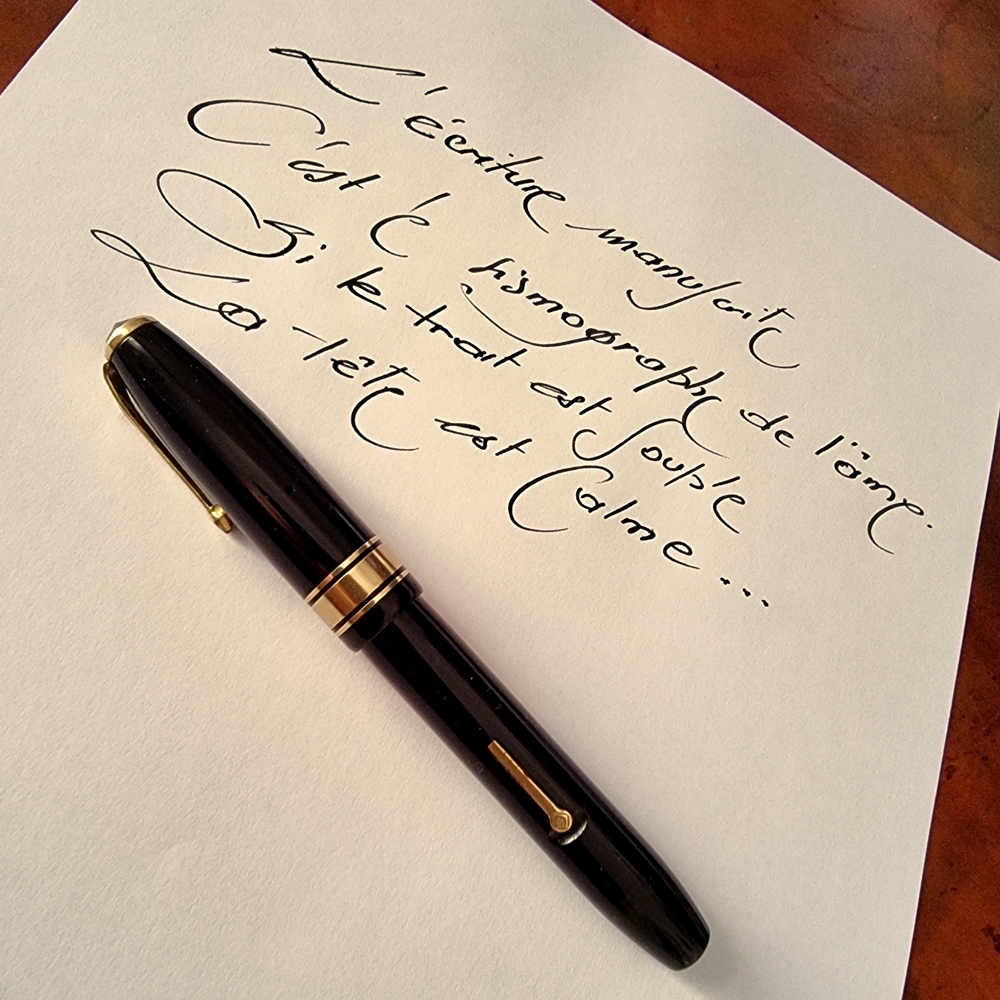 L'écriture manuscrite
C'est le sismographe de l'âme.
Si le trait est souple
La tête est Calme...